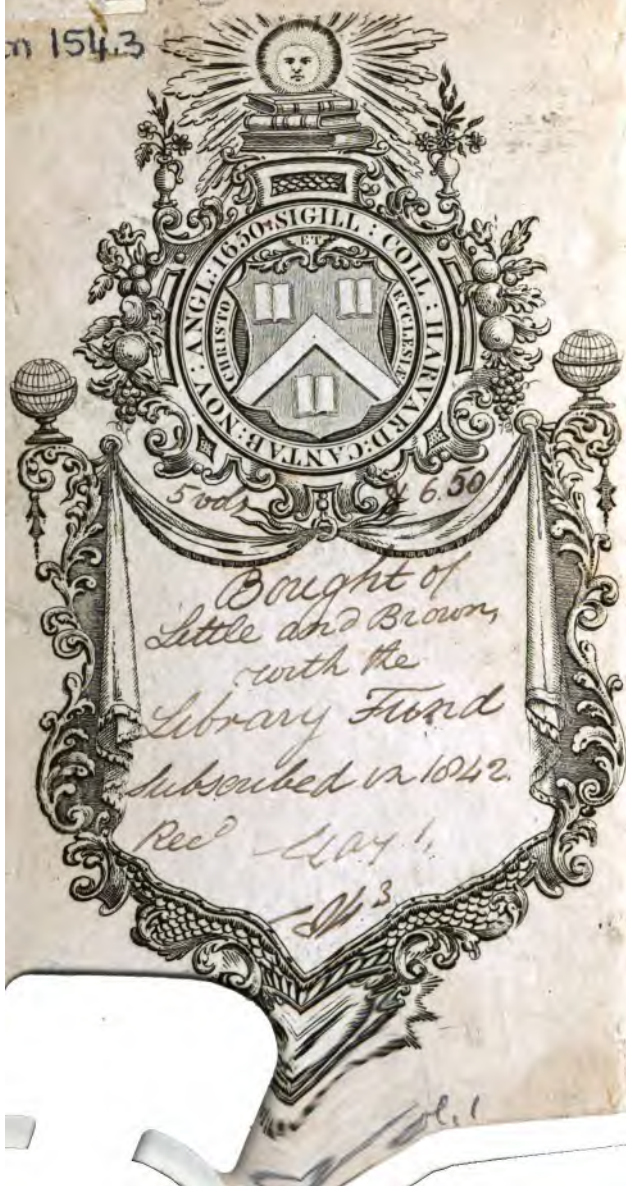 n 154.3
SIGILL : COLL : HARVARD : CANTAB : NOV : ANGL : 1650
ET
CHRISTO
ECCLESIÆ
5 vols
$ 6.50
Bought of
Little and Brown,
with the
Library Fund
subscribed in 1842.
Recd May 1,